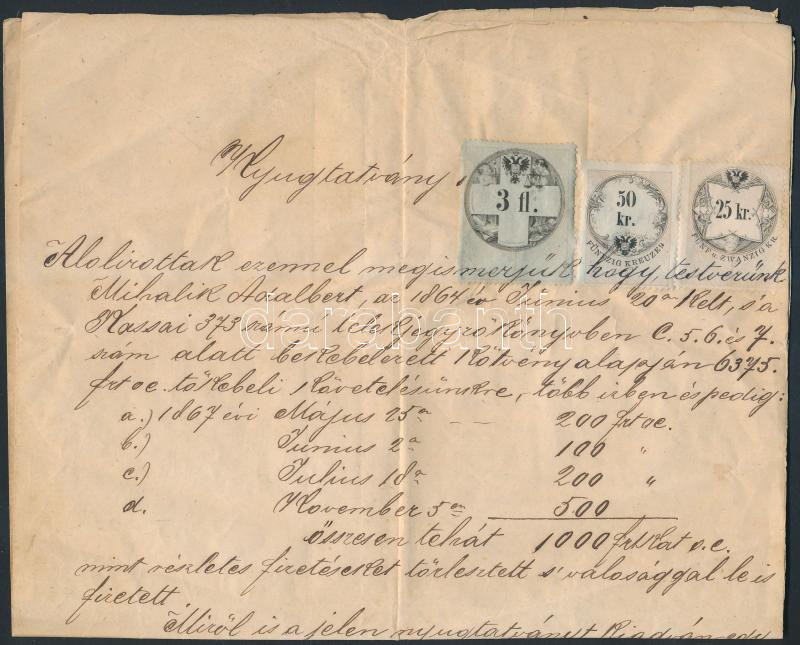 Nyugtatvány
3 fl.
50
kr.
FÜNFZIG KREUZER
25 kr.
FÜNF U. ZWANZIG KR.
Alolirottak ezennel megismerjük hogy, testvérünk
Mihalik Adalbert, az 1864 év Június 20án kelt, s'a
Kassai 373 számú telekjegyzőkönyvben C. 5. 6. és 7.
szám alatt bekebelezett kötvény alapján 6375.
frt oc. tőkebeli követelésünkre, több izben és pedig:
a.) 1867 évi Május 25én — 200 frt oc.
b.) Június 2án 100 "
c.) Július 18án 200 "
d. November 5én 500
összesen tehát 1000 frtkat o.c.
mint részletes fizetéseket törlesztett s' valósággal le is
fizetett.
Miről is a jelen nyugtatványt kiadván
darabanth